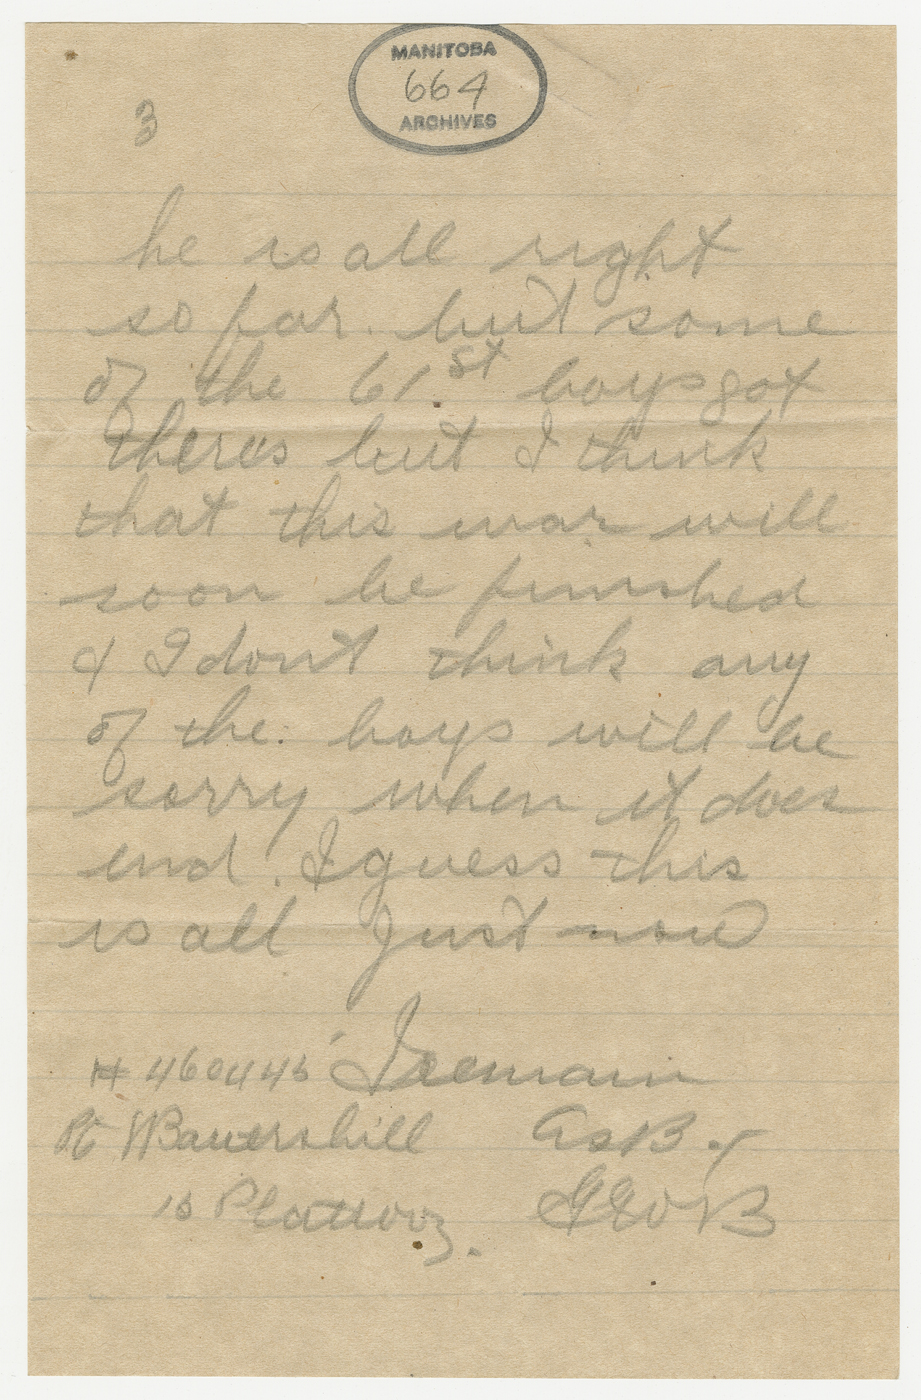 MANITOBA
664
ARCHIVES
3
he is all right
so far. but some
of the 61st boys got
theres but I think
that this war will
soon be finished
& I dont think any
of the. boys will be
sorry when it does
end. I guess this
is all just now
I remain
Pt
As B.
Geo B